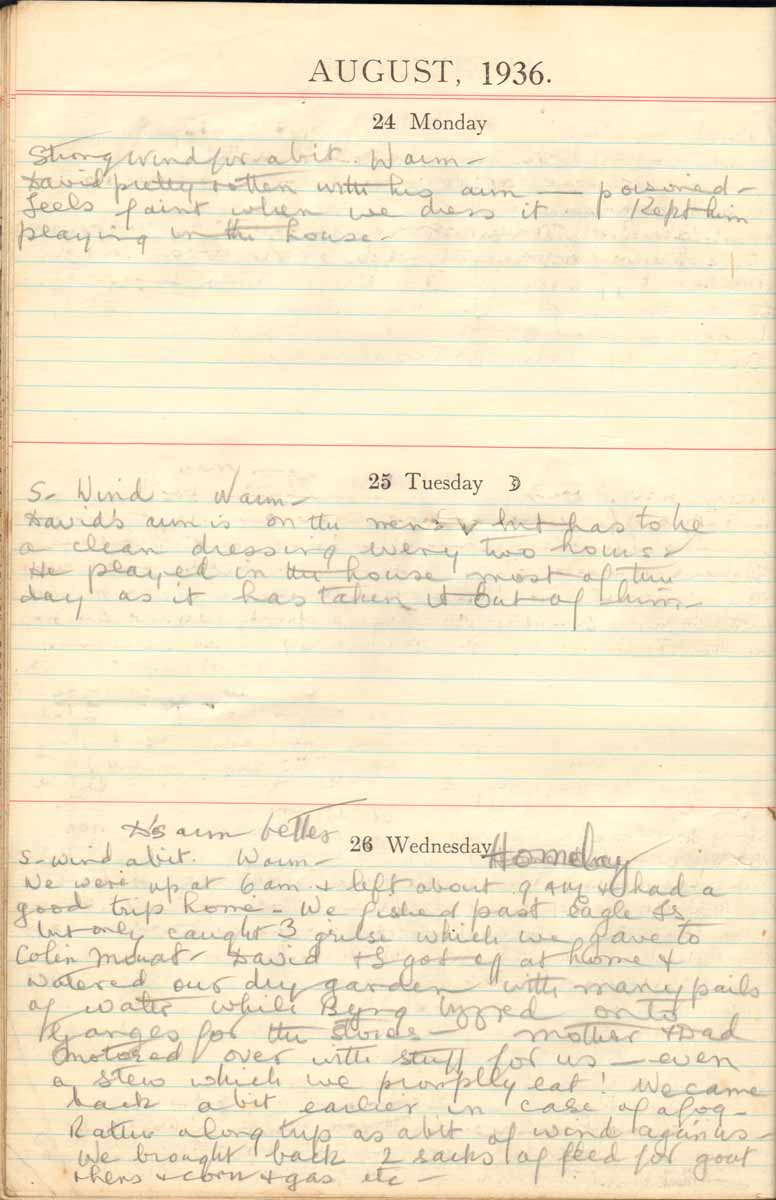 AUGUST, 1936.
24 Monday
Strong wind for a bit. Warm -
David pretty rotten with his arm — poisoned -
Feels faint when we dress it Kept him
playing in the house -
25 Tuesday
S - Wind Warm -
David's arm is on the mend but has to be
a clean dressing every two hours -
He played in the house most of the
day as it has taken it out of him -
D's arm better
26 Wednesday Homebay
S - wind a bit. Warm -
We were up at 6 am & left about 9 & had a
good trip home - We fished past Eagle Is
but only caught 3 grilse which we gave to
Colin Mouat - David & I got off at home &
watered our dry garden with many pails
of water while Byng on to
Ganges for the stores - Mother & Dad
motored over with stuff for us — even
a stew which we promptly eat! We came
back a bit earlier in case of a fog -
Rather a long trip as a bit of wind again us -
We brought back 2 sacks of feed for goat
& hens & corn & gas etc -